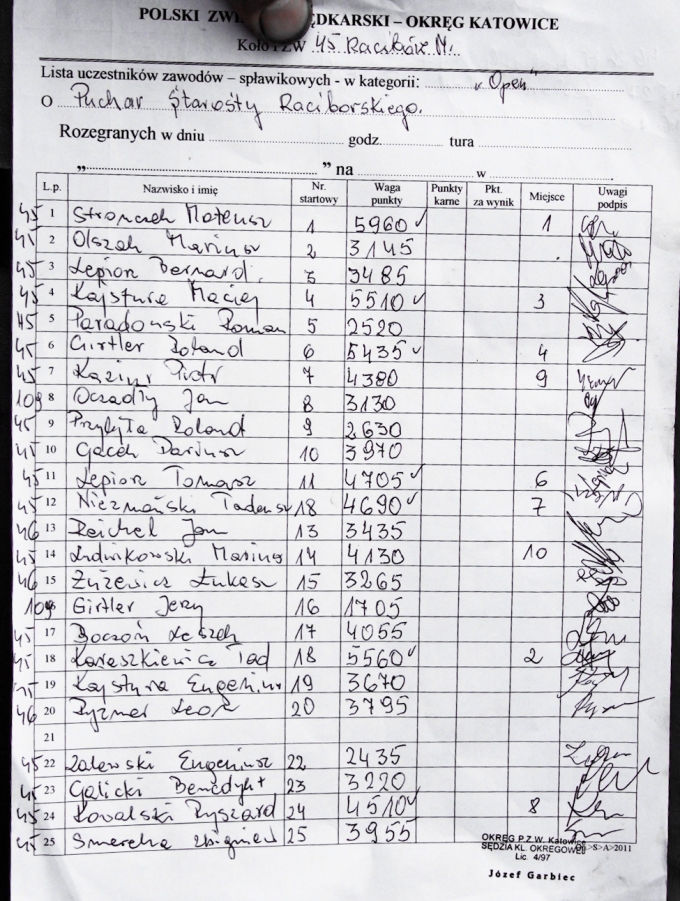 POLSKI ZW ĘDKARSKI – OKRĘG KATOWICE
Koło PZW 45 Racibórz M.
Lista uczestników zawodów – spławikowych - w kategorii: „Open"
O Puchar Starosty Raciborskiego.
Rozegranych w dniu godz. tura
„ ” na w
L.p. Nazwisko i imię Nr. startowy Waga punkty Punkty karne Pkt. za wynik Miejsce Uwagi podpis
45 1 Mateusz 1 5960 1
45 2 Olszak Mariusz 2 3145
45 3 Lepion Bernard. 3 3485
45 4 Kajstura Maciej 4 5510 3
45 5 Paradowski Roman 5 2520
45 6 Girtler Roland 6 5435 4
45 7 Kazimir Piotr 7 4380 9
109 8 Jan 8 3130
45 9 Przybyła Roland 9 2630
45 10 Gacek Dariusz 10 3970
45 11 Lepion Tomasz 11 4705 6
45 12 Niezmański Tadeusz 18 4690 7
46 13 Reichel Jan 13 3435
45 14 Ludwikowski Mariusz 14 4130 10
46 15 Łukasz 15 3265
109 16 Girtler Jerzy 16 1705
45 17 Boczoń Leszek 17 4055
45 18 Karaszkiewicz Tad 18 5560 2
45 19 Kajstura Eugeniusz 19 3670
46 20 Ryzner Leon 20 3795
21
45 22 Zalewski Eugeniusz 22 2435
45 23 Galicki Benedykt 23 3220
45 24 Kowalski Ryszard 24 4510 8
45 25 Smereka Zbigniew 25 3955
OKRĘG P.Z.W. Katowice
SĘDZIA KL. OKRĘGOWEJ >S>A>2011
Lic. 4/97
Józef Garbiec